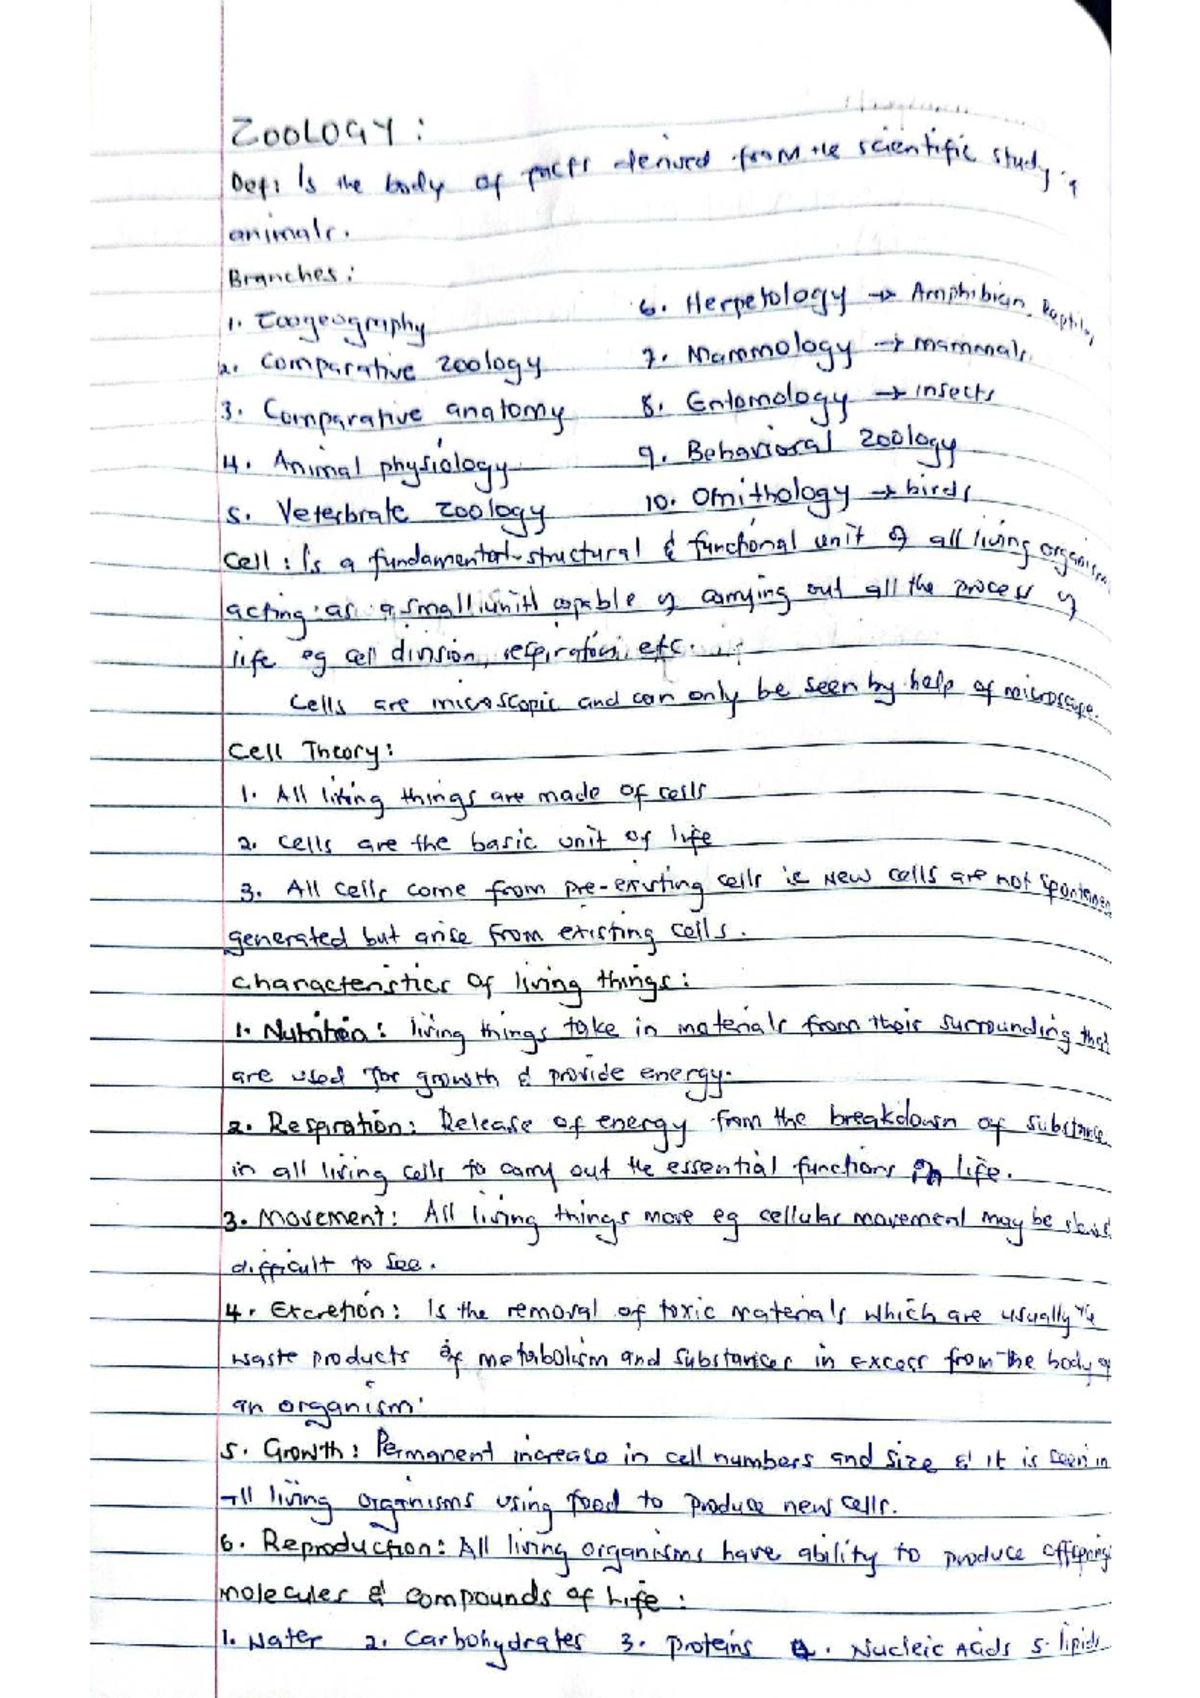 ZOOLOGY:
Def: Is the body of facts derived from the scientific study of
animals.
Branches:
1. Zoogeography
2. Comparative zoology
3. Comparative anatomy
4. Animal physiology
5. Veterbrate Zoology
6. Herpetology → Amphibian, Reptiles
7. Mammology → mammals
8. Entomology → insects
9. Behavioral zoology
10. Ornithology → birds
Cell: Is a fundamental structural & functional unit of all living organisms
acting as a small unit capable of carrying out all the process of
life eg cell division, respiration, etc.
Cells are microscopic and can only be seen by help of microscope.
Cell Theory:
1. All living things are made of cells
2. Cells are the basic unit of life
3. All cells come from pre-existing cells ie New cells are not
generated but arise from existing cells.
Characteristics of living things:
1. Nutrition: living things take in materials from their surrounding that
are used for growth & provide energy.
2. Respiration: Release of energy from the breakdown of substance
in all living cells to carry out the essential functions in life.
3. Movement: All living things move eg cellular movement may be
difficult to see.
4. Excretion: Is the removal of toxic materials which are usually the
waste products of metabolism and substances in excess from the body of
an organism.
5. Growth: Permanent increase in cell numbers and size & it is seen in
all living organisms using food to produce new cells.
6. Reproduction: All living organisms have ability to produce offspring
molecules & compounds of Life:
1. Water 2. Carbohydrates 3. proteins 4. Nucleic Acids 5. lipids